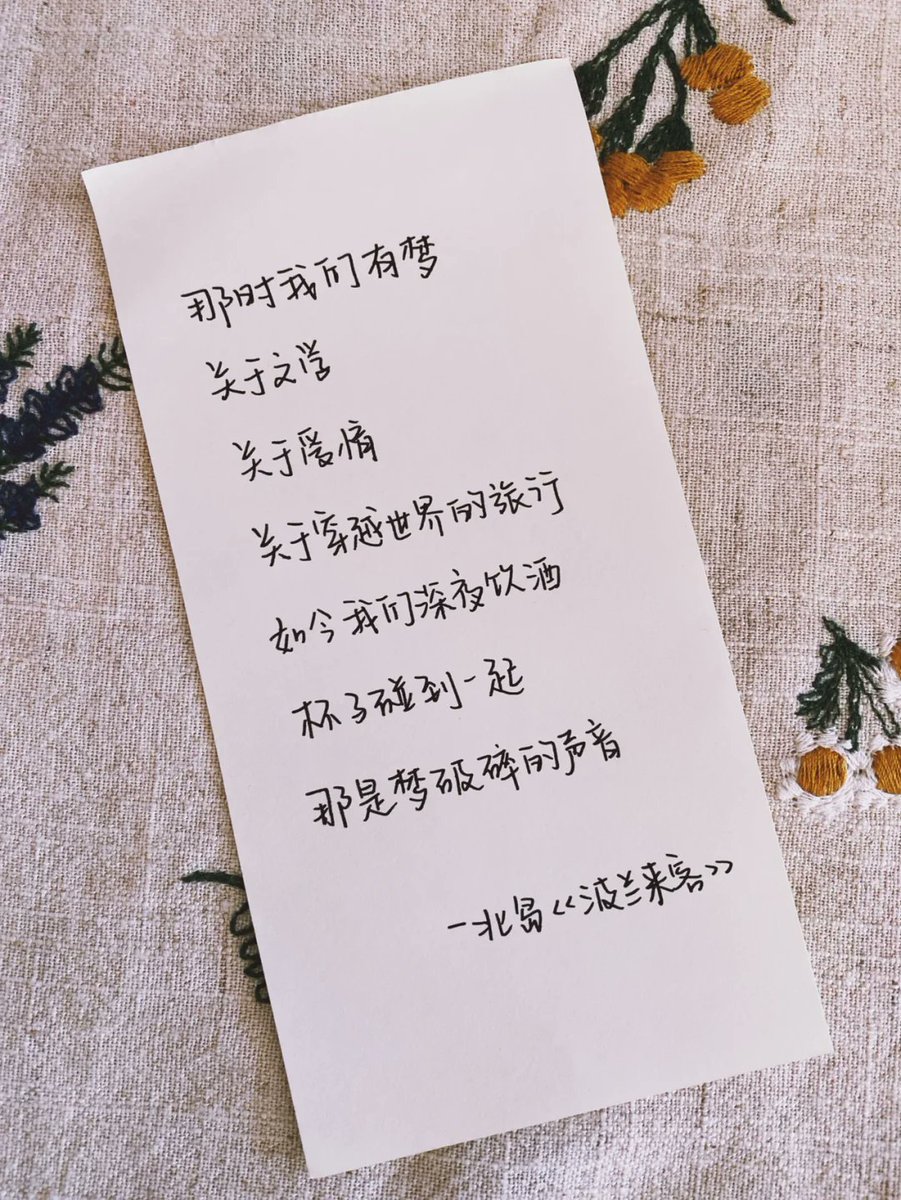 那时我们有梦
关于文学
关于爱情
关于穿越世界的旅行
如今我们深夜饮酒
杯子碰到一起
那是梦破碎的声音
—北岛《波兰来客》